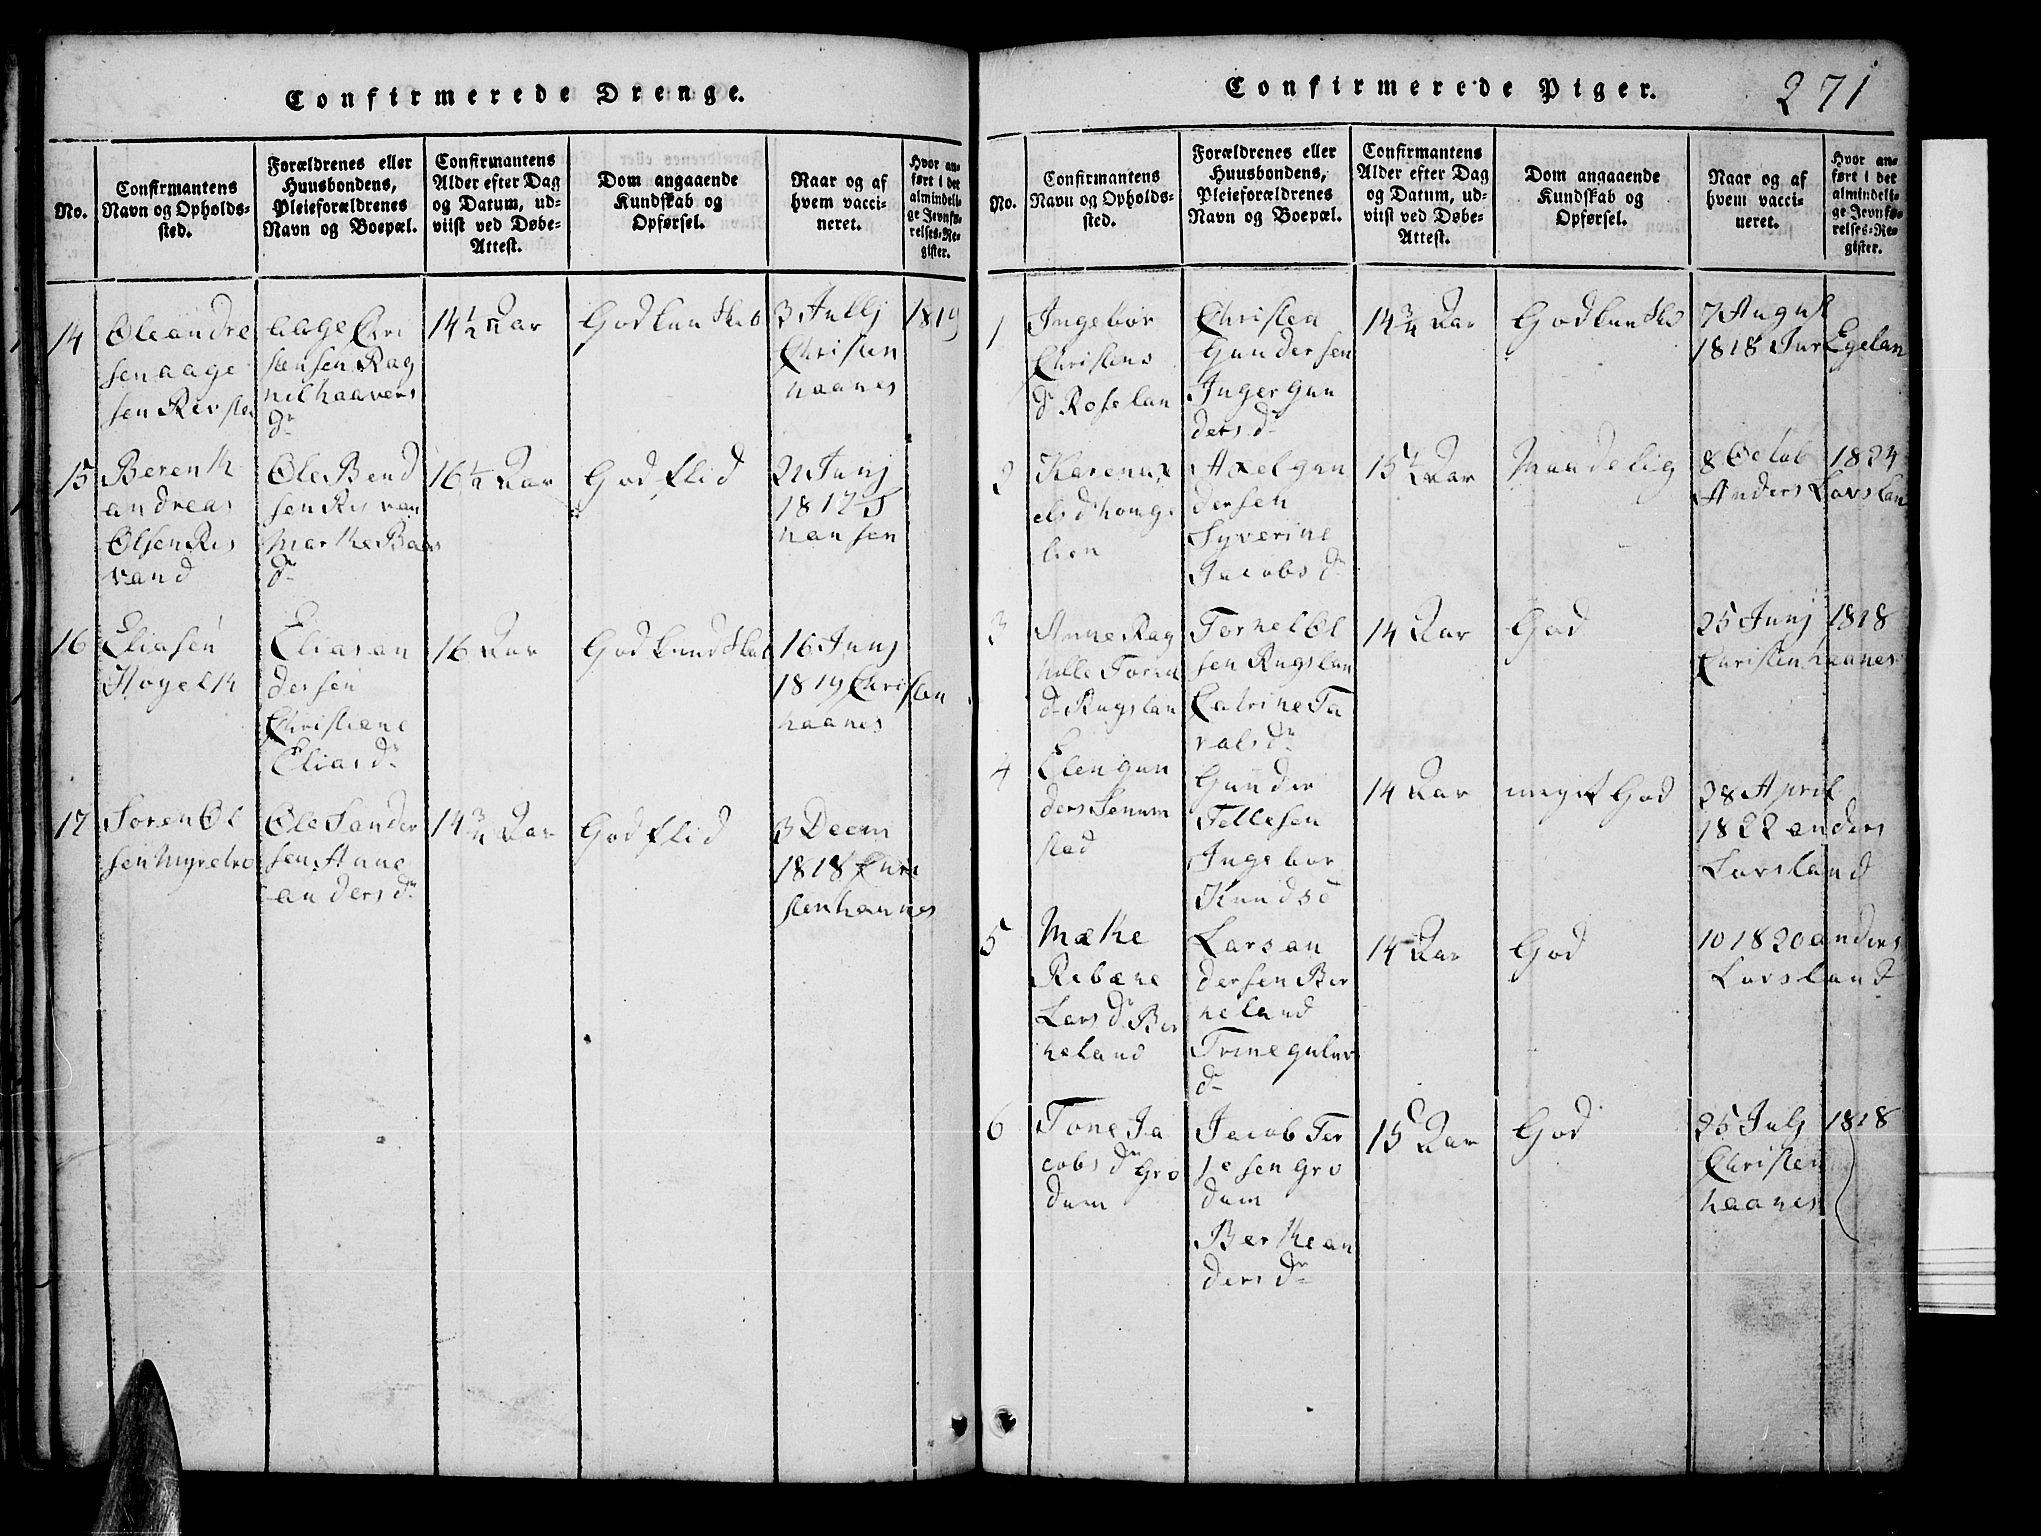 Confirmerede Drenge.
No.
Confirmantens
Navn og Opholds-
sted.
Forældrenes eller
Huusbondens,
Pleieforældrenes
Navn og Boepæl.
Confirmantens
Alder efter Dag
og Datum, ud-
viist ved Døbe-
Attest.
Dom angaaende
Kundskab og
Opførsel.
Naar og af
hvem vacci-
neret.
Hvor an-
ført i det
almindeli-
ge Jevnfø-
relses-Re-
gister.
14
Ole andre
sen aage
sen
aage Chri
stensen Rag
nil haavers
dr
14 1/2 Aar
God kundskab
3 Jullj 1819
Christen
haanes
15
Berenth
andreas
Olsen Ris
vand
Ole Bend
sen Risvan
Marthe Baars
dr
16 1/2 Aar
God flid
21 Junj
1812 J
hansen
16
Eliasen
Høgelth
Elias an
dersen
Christiane
Elias dr
16 Aar
God kundskab
16 Junj
1819 Christen
haanes
17
Søren Ol
sen Myretvo
Ole Sander
sen Anne
anders dr
14 3/4 Aar
God flid
3 Decm
1818 Chri
sten haanes
Confirmerede Piger.
271
No.
Confirmantens
Navn og Opholds-
sted.
Forældrenes eller
Huusbondens,
Pleieforældrenes
Navn og Boepæl.
Confirmantens
Alder efter Dag
og Datum, ud-
viist ved Døbe-
Attest.
Dom angaaende
Kundskab og
Opførsel.
Naar og af
hvem vacci-
neret.
Hvor an-
ført i det
almindeli-
ge Jevnfø-
relses-Re-
gister.
1
Ingebor
Christens
dr Roselan
Christen
Gundersen
Inger Gun
ders dr
14 3/4 Aar
God kundsk
7 August
1818 Egelan
2
Karen ax
els d
lien
Axel gun
dersen
Syverine
Jacobs dr
15 1/2 Aar
Maadelig
8 Octob 1824
Anders Lavslan
3
Anne Rag
nille
dr Rugslan
Tornel Ol
sen Rugslan
Catrine Ta
vals dr
14 Aar
God
25 Junj 1818
Christen haanes
4
Elen gun
ders
sted
Gunder
Tellesen
Ingebor
Knuds d
14 Aar
meget God
28 April
1822 anders
Lavsland
5
Mæthe
Rebæne
Lars dr Ber
keland
Lars an
dersen Ber
keland
Trine gulov
dr
14 Aar
God
10 1820 anders
Lavsland
6
Tone Ja
cobs dr Gro
dum
Jacob Ter
jesen Gro
dum
Berthe an
ders dr
15 Aar
God
25 Julj 1818
Christen
haanes